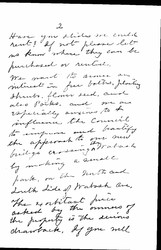 2
Have you slides we could
rent? If not please let
us know where they can be
purchased or rented.
We want to arouse an
interest in free baths, planting
shrubs, flower seed, and
also Parks, and we are
especially anxious to
influence the Council
to improve and beautify
the approach to the new
bridge crossing Wabash
by making a small
park, on the North and
South Side of Wabash Ave.
The exorbitant price
asked by the owners of
the property is the serious
drawback. If you will